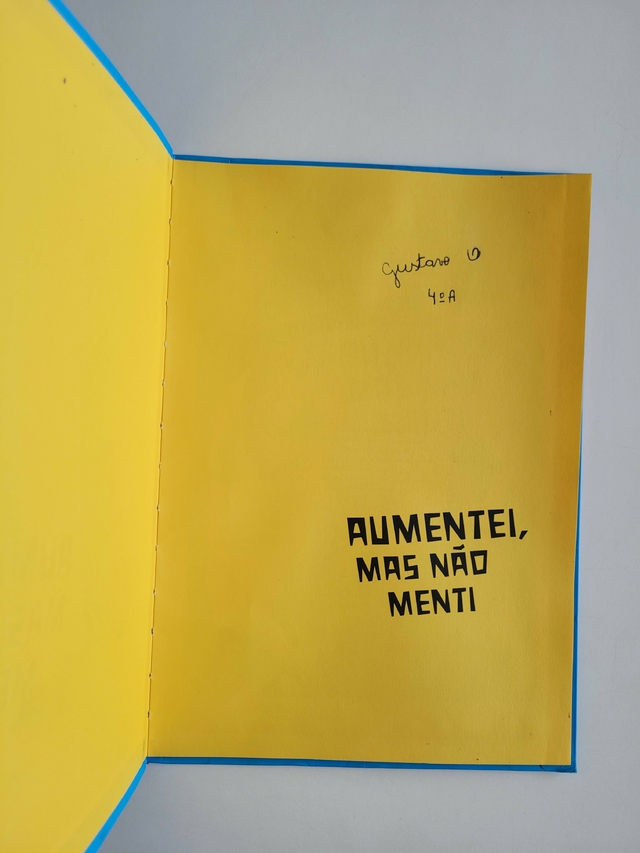 Gustavo D
4º A
AUMENTEI,
MAS NÃO
MENTI